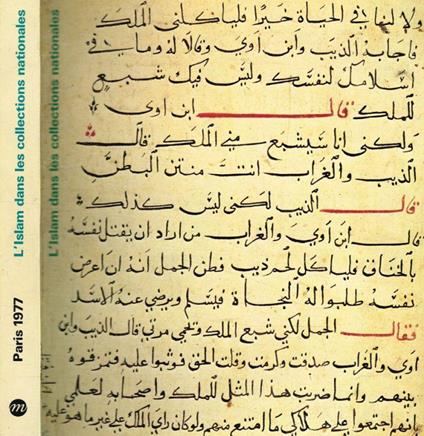 L'Islam dans les collections nationales
Paris 1977
m
L'Islam dans les collections nationales
ولا لنا في الحياة خيرا فلياكلني الملك
فاجابه الذيب وابن اوي وقالا له وما في
اسلامك لنفسك وليس فيك شبع
للملك قال ابن اوي
ولكني انا سيشبع مني الملك قال
الذيب والغراب انت منتن البطن
قال الذيب لكني ليس كذلك
قال ابن اوي والغراب من اراد ان يقتل نفسه
بالخناق فلياكل لحم ذيب فظن الجمل انه ان اعرض
نفسه طلبوا له النجاة فيسلم ويرضي عنه الاسد
فقال الجمل لكني شبع الملك ولحمي مري قال الذيب وابن
اوي والغراب صدقت وكرمت وقلت الحق فوثبوا عليه فمزقوه
بينهم وانما ضربت هذا المثل للملك واصحابه لعلمي
بانهم اجتمعوا على هلاكي ما امتنع منهم ولو كان راي الملك لي على غير ما هو عليه